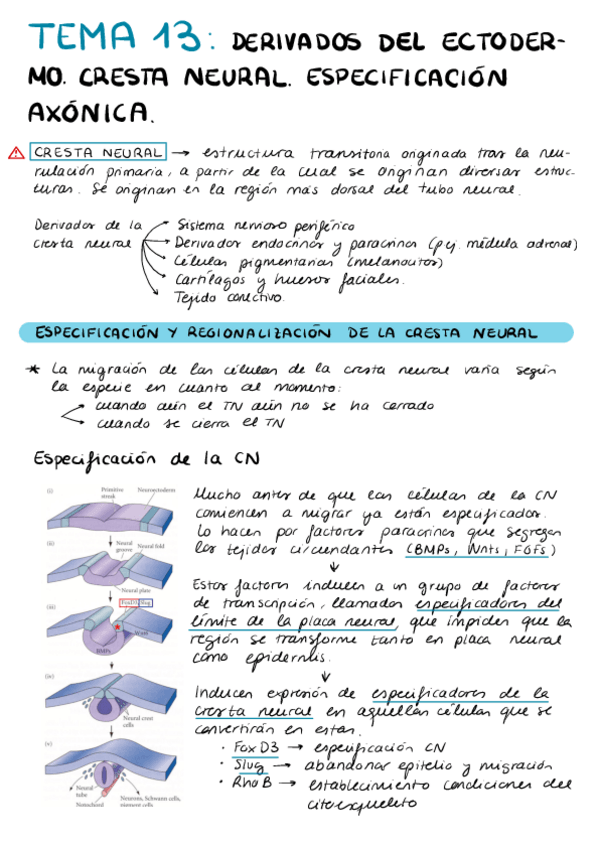 TEMA 13: DERIVADOS DEL ECTODER-
MO. CRESTA NEURAL. ESPECIFICACIÓN
AXÓNICA.
CRESTA NEURAL → estructura transitoria originada tras la neu-
rulación primaria, a partir de la cual se originan diversas estruc-
turas. Se originan en la región más dorsal del tubo neural.
Derivados de la
cresta neural
Sistema nervioso periférico
Derivados endocrinos y paracrinos (pej. médula adrenal)
Células pigmentarias (melanocitos)
Cartílagos y huesos faciales.
Tejido conectivo.
ESPECIFICACIÓN Y REGIONALIZACIÓN DE LA CRESTA NEURAL
* La migración de las células de la cresta neural varía según
la especie en cuanto al momento:
cuando aún el TN aún no se ha cerrado
cuando se cierra el TN
Especificación de la CN
(i)
Primitive
streak
Neuroectoderm
(ii)
Neural
groove
Neural fold
Neural plate
(iii)
FoxD3, Slug
Wnts
BMPs
(iv)
Neural crest
cells
(v)
Neural
tube
Notochord
Neurons, Schwann cells,
pigment cells
Mucho antes de que las células de la CN
comiencen a migrar ya están especificadas.
Lo hacen por factores paracrinos que segregan
los tejidos circundantes (BMPs, Wnts, FGFs)
↓
Estos factores inducen a un grupo de factores
de transcripción, llamados especificadores del
límite de la placa neural, que impiden que la
región se transforme tanto en placa neural
como epidermis.
↓
Inducen expresión de especificadores de la
cresta neural en aquellas células que se
convertirán en estas.
· Fox D3 → especificación CN
· Slug → abandonar epitelio y migración
· Rho B → establecimiento condiciones del
citoesqueleto